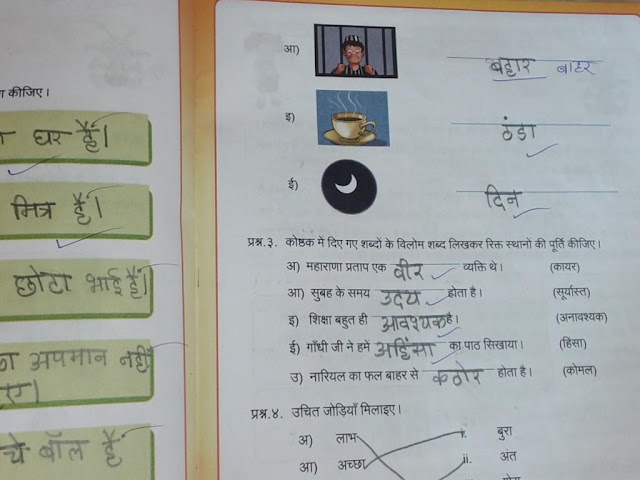 कीजिए।
घर है।
मित्र है।
छोटा भाई है।
अपमान नहीं
ए।
चे बॉल है
आ) बहार बाहर
इ) ठंडा
ई) दिन
प्रश्न.३. कोष्ठक में दिए गए शब्दों के विलोम शब्द लिखकर रिक्त स्थानों की पूर्ति कीजिए।
अ) महाराणा प्रताप एक वीर व्यक्ति थे। (कायर)
आ) सुबह के समय उदय होता है। (सूर्यास्त)
इ) शिक्षा बहुत ही आवश्यक है। (अनावश्यक)
ई) गाँधी जी ने हमे अहिंसा का पाठ सिखाया। (हिंसा)
उ) नारियल का फल बाहर से कठोर होता है। (कोमल)
प्रश्न.४. उचित जोड़ियाँ मिलाइए।
अ) लाभ i. बुरा
आ) अच्छा ii. अंत